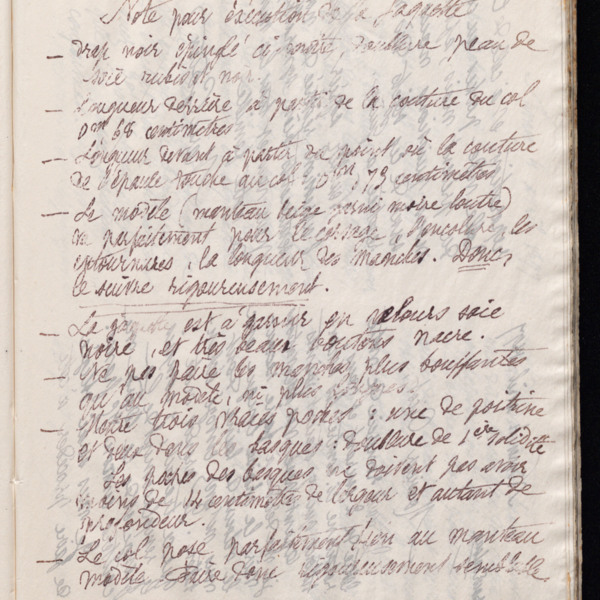 Note pour exécution de la Jaquette
— drap noir épinglé ci contre, doublure peau de
soie noir.
— Longueur derrière à partir de la couture du col
0m 68 centimètres
— Longueur devant à partir du point où la couture
de l'épaule touche au col 0m 79 centimètres
— Le modèle (manteau beige garni moire loutre)
va parfaitement pour le corsage, l'encolure, les
entournures, la longueur des manches. Donc,
le suivre rigoureusement.
— La jaquette est à garnir en velours soie
noire, et très beaux boutons nacre.
— Ne pas faire les manches plus bouffantes
qu'au modèle, ni plus
— Mettre trois vraies poches : une de poitrine
et deux dans les basques : doublure de 1ère solidité
Les poches des basques ne doivent pas avoir
moins de 14 centimètres de largeur et autant de
profondeur.
— Le col pose parfaitement bien au manteau
modèle. Faire donc rigoureusement